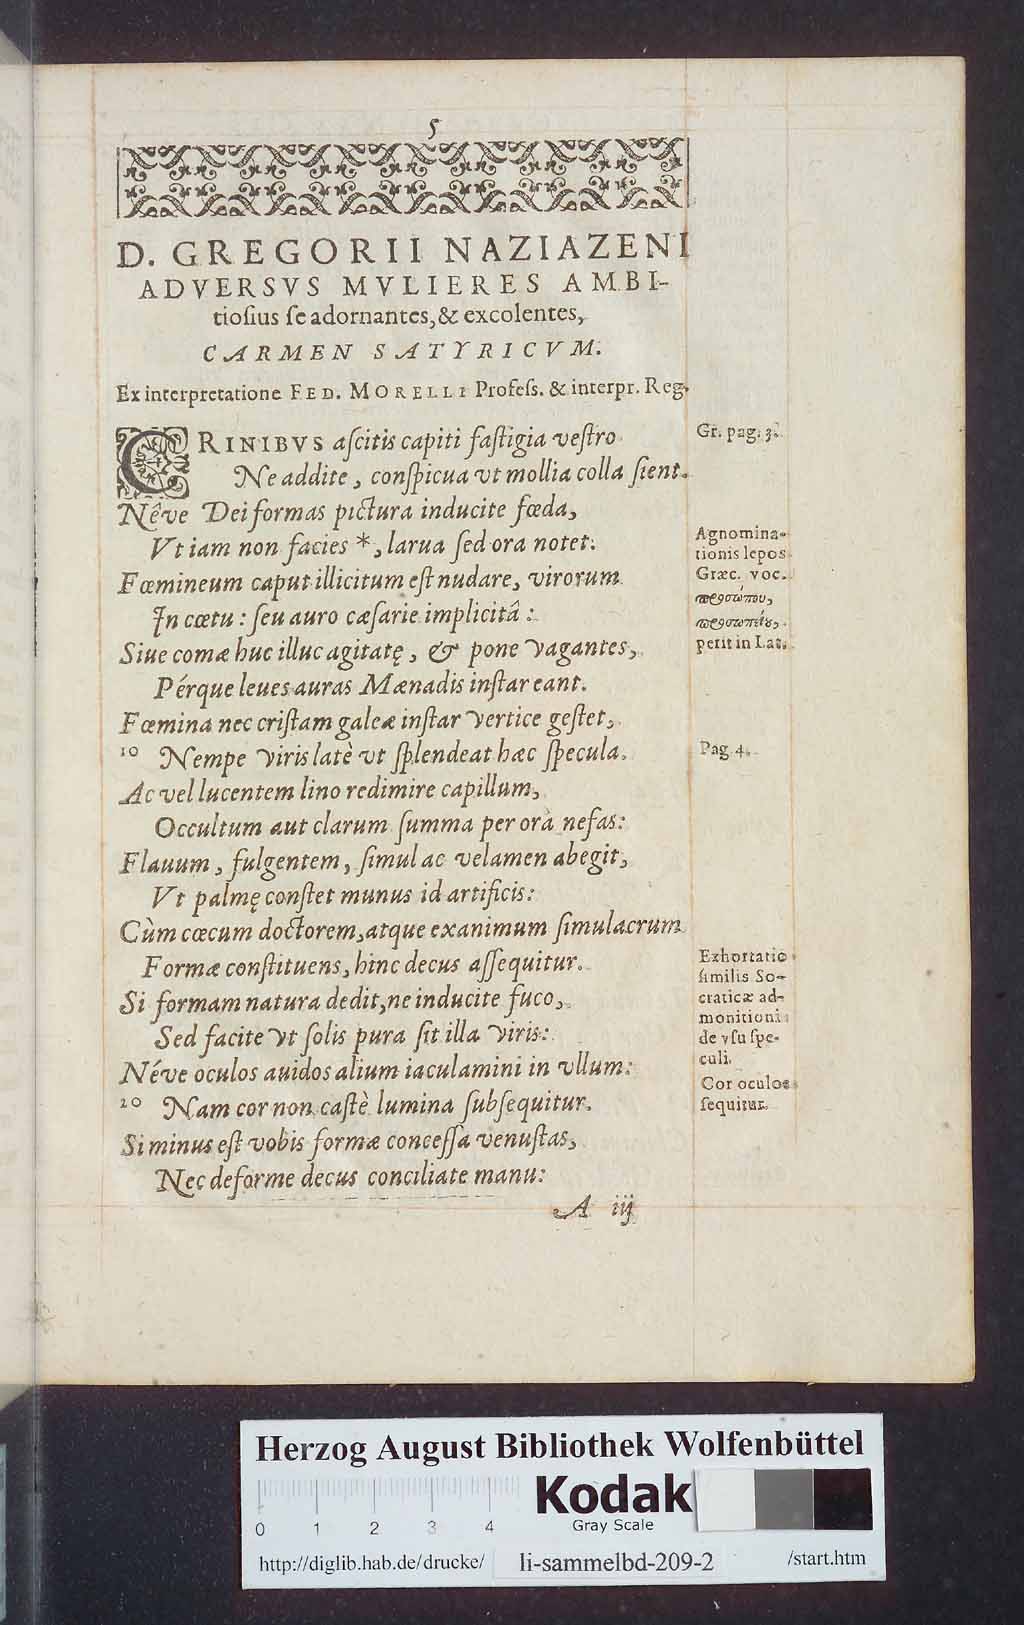 5
D. GREGORII NAZIAZENI
ADVERSVS MVLIERES AMBI-
tiosius se adornantes, & excolentes,
CARMEN SATYRICVM.
Ex interpretatione FED. MORELLI Profess. & interpr. Reg.
CRINIBVS ascitis capiti fastigia vestro
Ne addite, conspicua vt mollia colla sient.
Nêve Dei formas pictura inducite fœda,
Vt iam non facies *, larua sed ora notet.
Fœmineum caput illicitum est nudare, virorum
In cœtu: seu auro cæsarie implicitâ:
Siue comæ huc illuc agitatę, & pone vagantes,
Pérque leues auras Mænadis instar eant.
Fœmina nec cristam galeæ instar vertice gestet,
10 Nempe viris latè vt splendeat hæc specula.
Ac vel lucentem lino redimire capillum,
Occultum aut clarum summa per ora nefas:
Flauum, fulgentem, simul ac velamen abegit,
Vt palmę constet munus id artificis:
Cùm cœcum doctorem, atque exanimum simulacrum
Formæ constituens, hinc decus assequitur.
Si formam natura dedit, ne inducite fuco,
Sed facite vt solis pura sit illa viris:
Néve oculos auidos alium iaculamini in vllum:
20 Nam cor non castè lumina subsequitur.
Si minus est vobis formæ concessa venustas,
Nec deforme decus conciliate manu:
A iij
Gr. pag. 3.
Agnomina-
tionis lepos
Græc. voc.
προσώπου,
προσωπείου,
perit in Lat.
Pag. 4.
Exhortatio
similis So-
craticæ ad-
monitioni
de vsu spe-
culi.
Cor oculos
sequitur.
Herzog August Bibliothek Wolfenbüttel
0 1 2 3 4
Kodak
Gray Scale
http://diglib.hab.de/drucke/ li-sammelbd-209-2 /start.htm